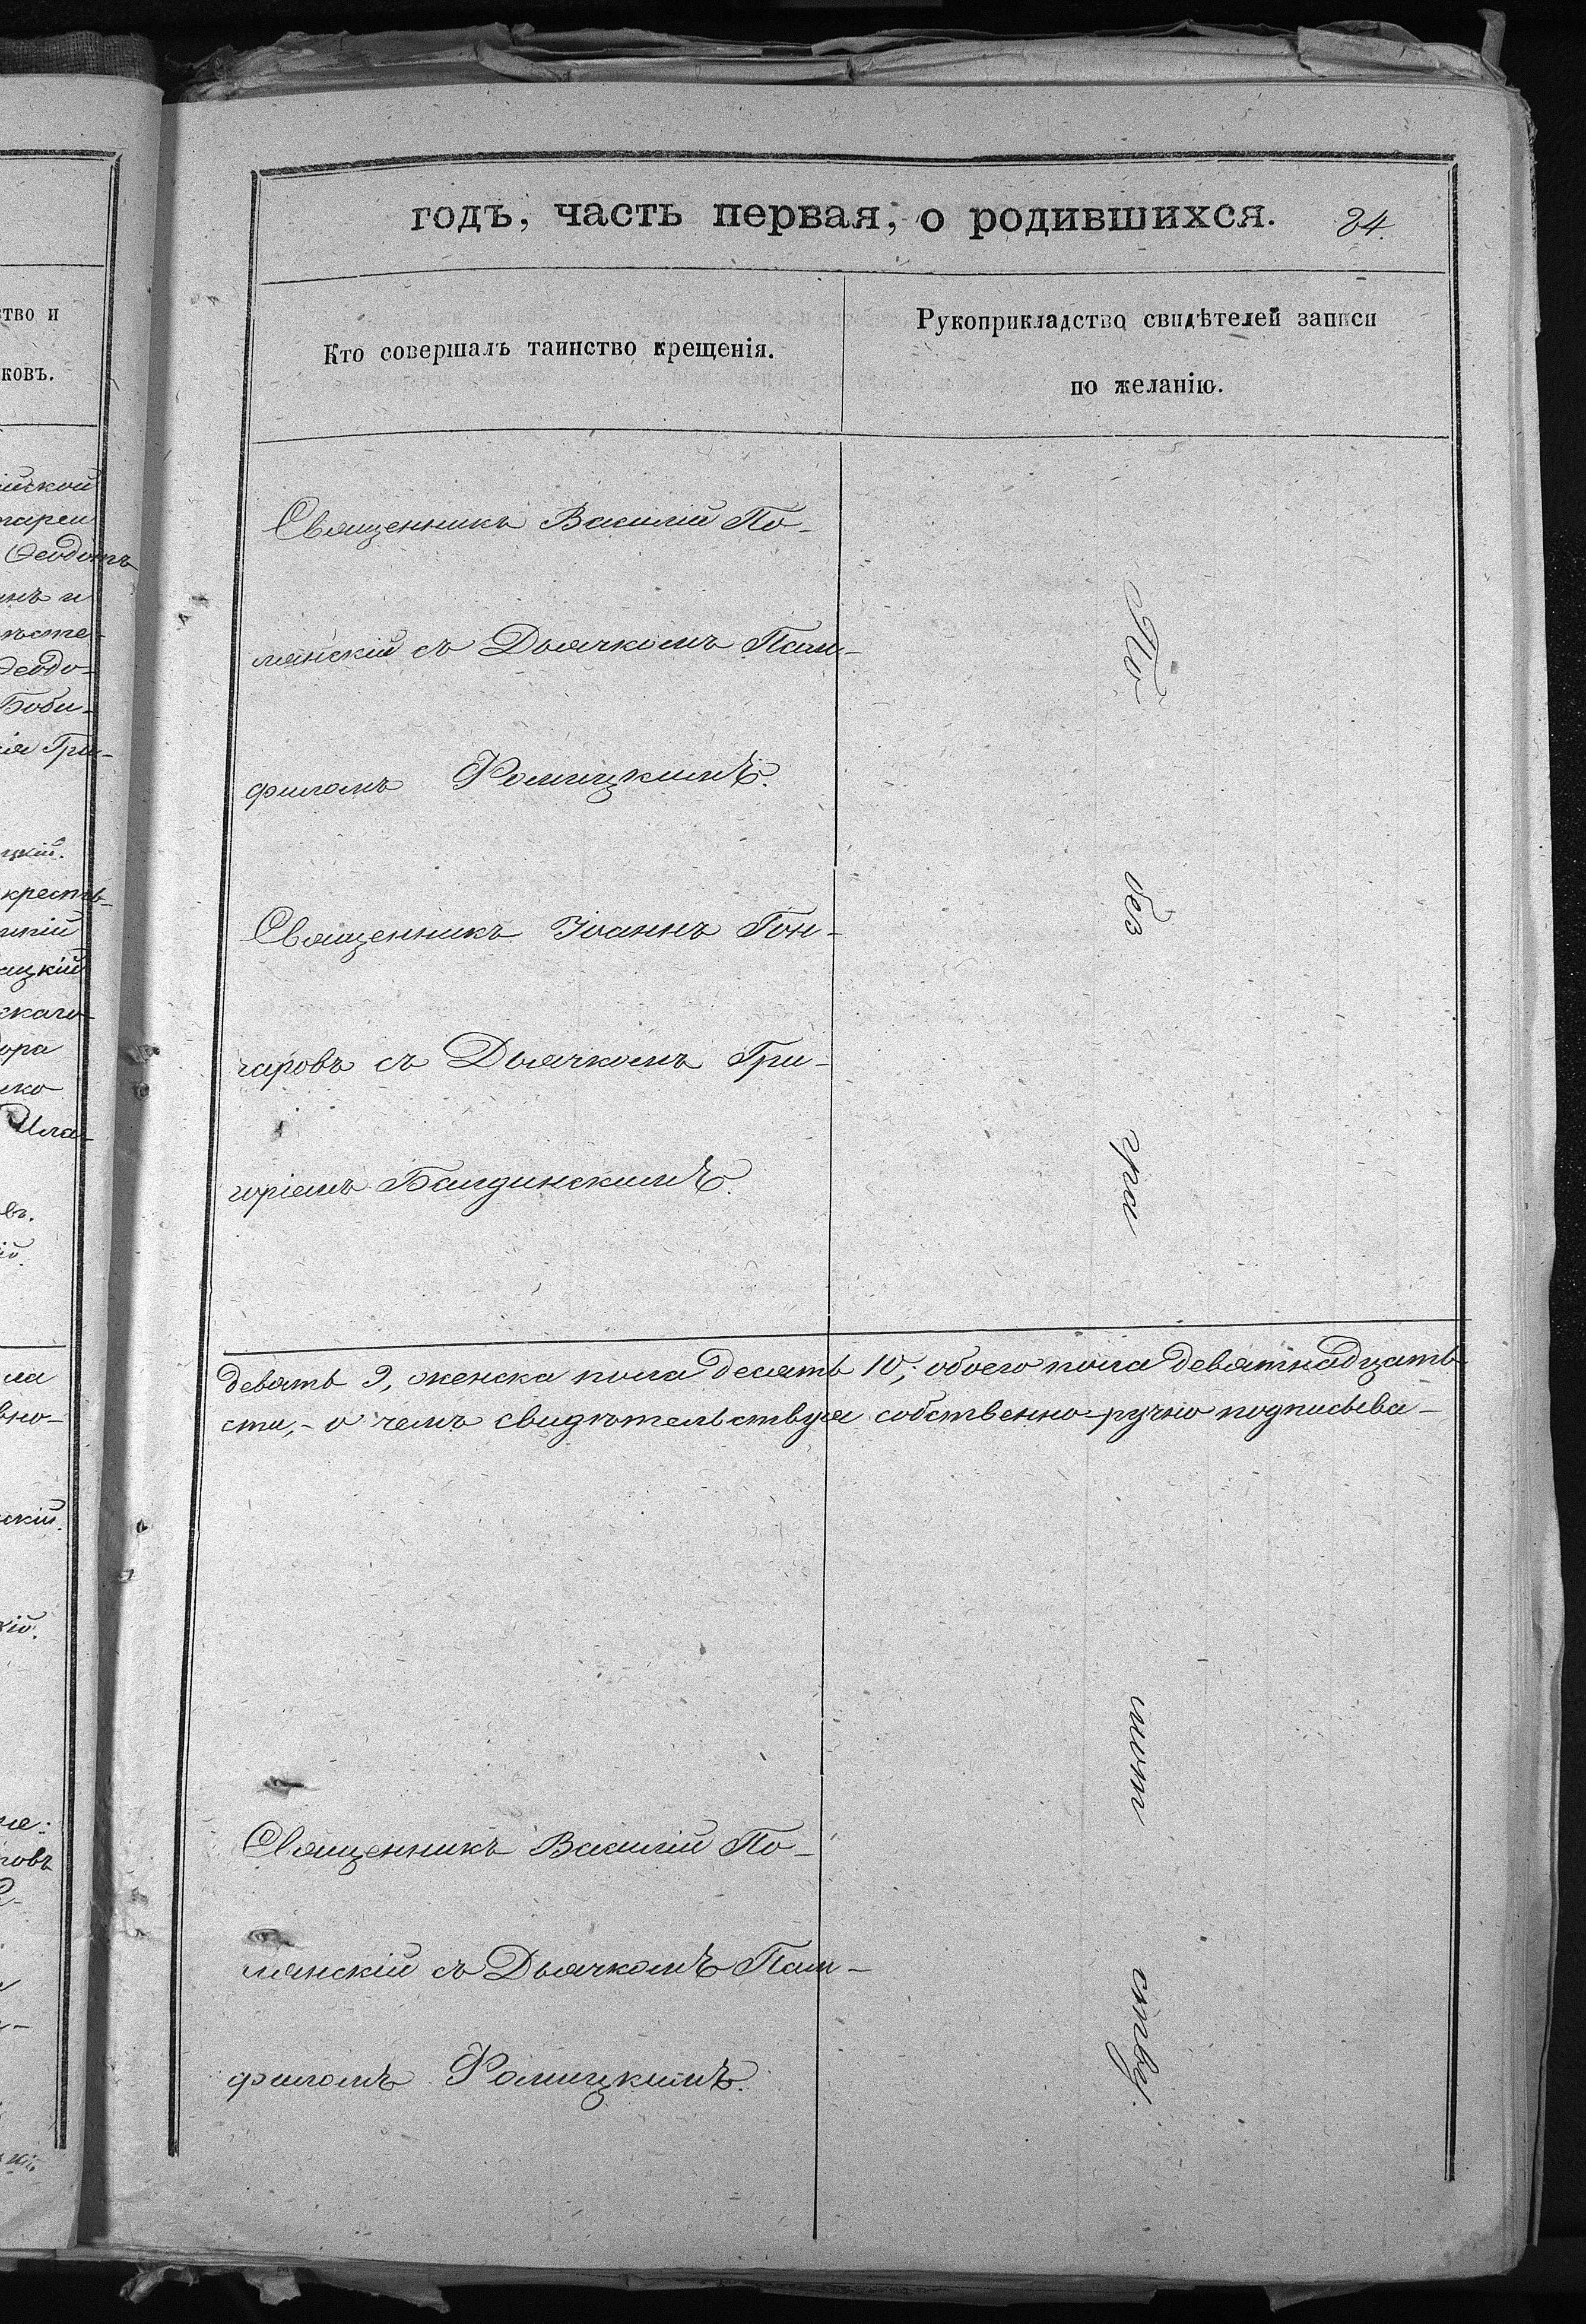 годъ, часть первая, о родившихся. 84.
ство и
ковъ.
Кто совершалъ таинство крещенія.
Рукоприкладство свидѣтелей записи
по желанію.
Священникъ Василій По-
лянскій съ Дьячкомъ Пам-
филомъ Ромицкимъ.
Священникъ Іоаннъ Гон-
чаровъ съ Дьячкомъ Гри-
горіемъ Балдинскимъ.
По
без
гра
мот
ству.
девять 9, женска пола десять 10; обоего пола девятнадцать
сти, - о чемъ свидѣтельствуя собственно-ручно подписыва-
Священникъ Василій По-
лянскій съ Дьячкомъ Пам-
филомъ Ромицкимъ.
Феодотъ
Феодо-
Боби-
Гри-
кресть-